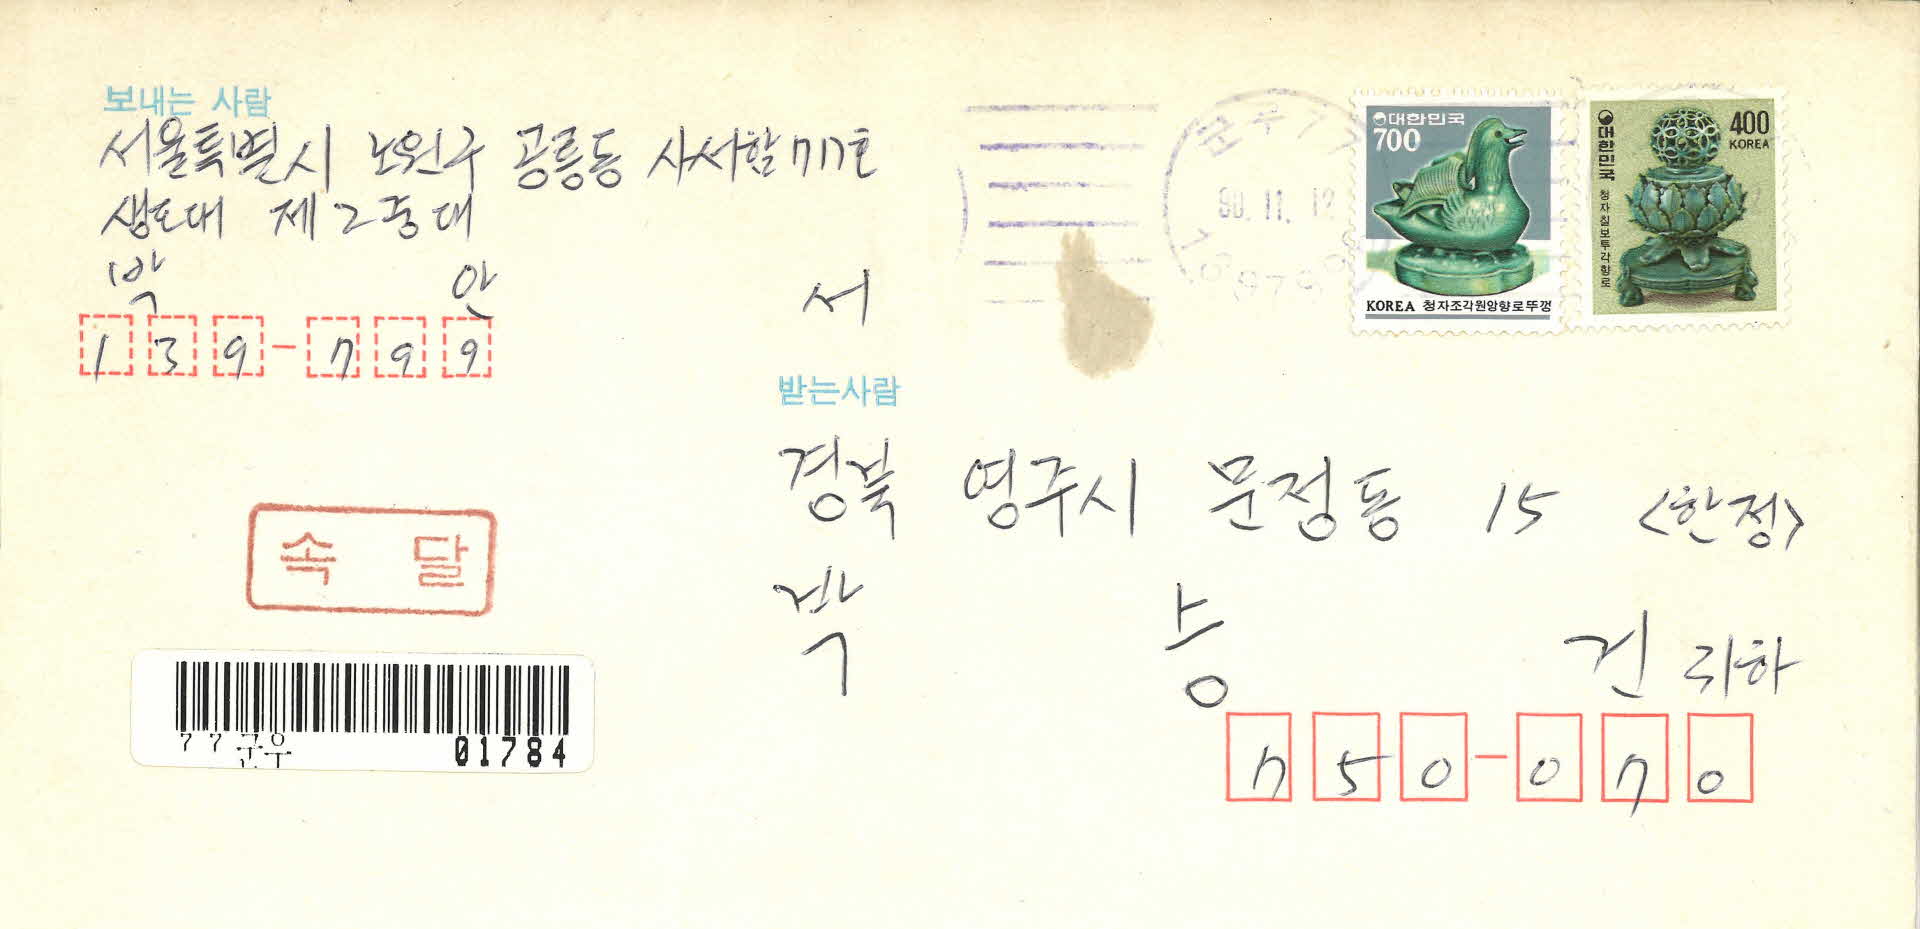 보내는 사람
서울특별시 노원구 공릉동 사서함 77호
생도대 제2중대
박 안 서
139-799
대한민국
700
KOREA 청자조각원앙향로뚜껑
대한민국
400
KOREA
청자칠보투각향로
90.11.12
받는사람
경북 영주시 문정동 15 <한정>
박 승 건 귀하
750-070
속 달
77군우
01784